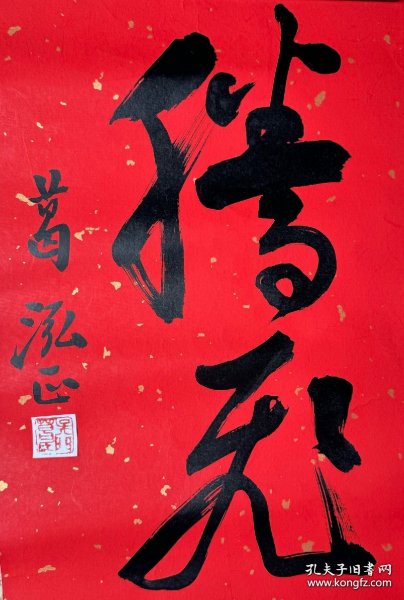 腾飞
葛泓正
孔夫子旧书网
www.kongfz.com